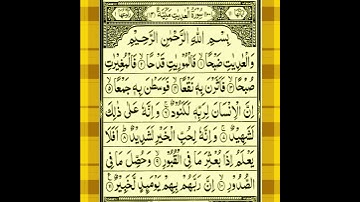 سُوْرَةُ الْعٰدِيٰتِ مَكِّيَّةٌ
بِسْمِ اللّٰهِ الرَّحْمٰنِ الرَّحِيْمِ
وَالْعٰدِيٰتِ ضَبْحًا ۙ فَالْمُوْرِيٰتِ قَدْحًا ۙ فَالْمُغِيْرٰتِ
صُبْحًا ۙ فَاَثَرْنَ بِهٖ نَقْعًا ۙ فَوَسَطْنَ بِهٖ جَمْعًا ۙ
اِنَّ الْاِنْسَانَ لِرَبِّهٖ لَكَنُوْدٌ ۚ وَاِنَّهٗ عَلٰى ذٰلِكَ
لَشَهِيْدٌ ۚ وَاِنَّهٗ لِحُبِّ الْخَيْرِ لَشَدِيْدٌ ؕ اَفَلَا
يَعْلَمُ اِذَا بُعْثِرَ مَا فِى الْقُبُوْرِ ۙ وَحُصِّلَ مَا فِى
الصُّدُوْرِ ۙ اِنَّ رَبَّهُمْ بِهِمْ يَوْمَئِذٍ لَّخَبِيْرٌ